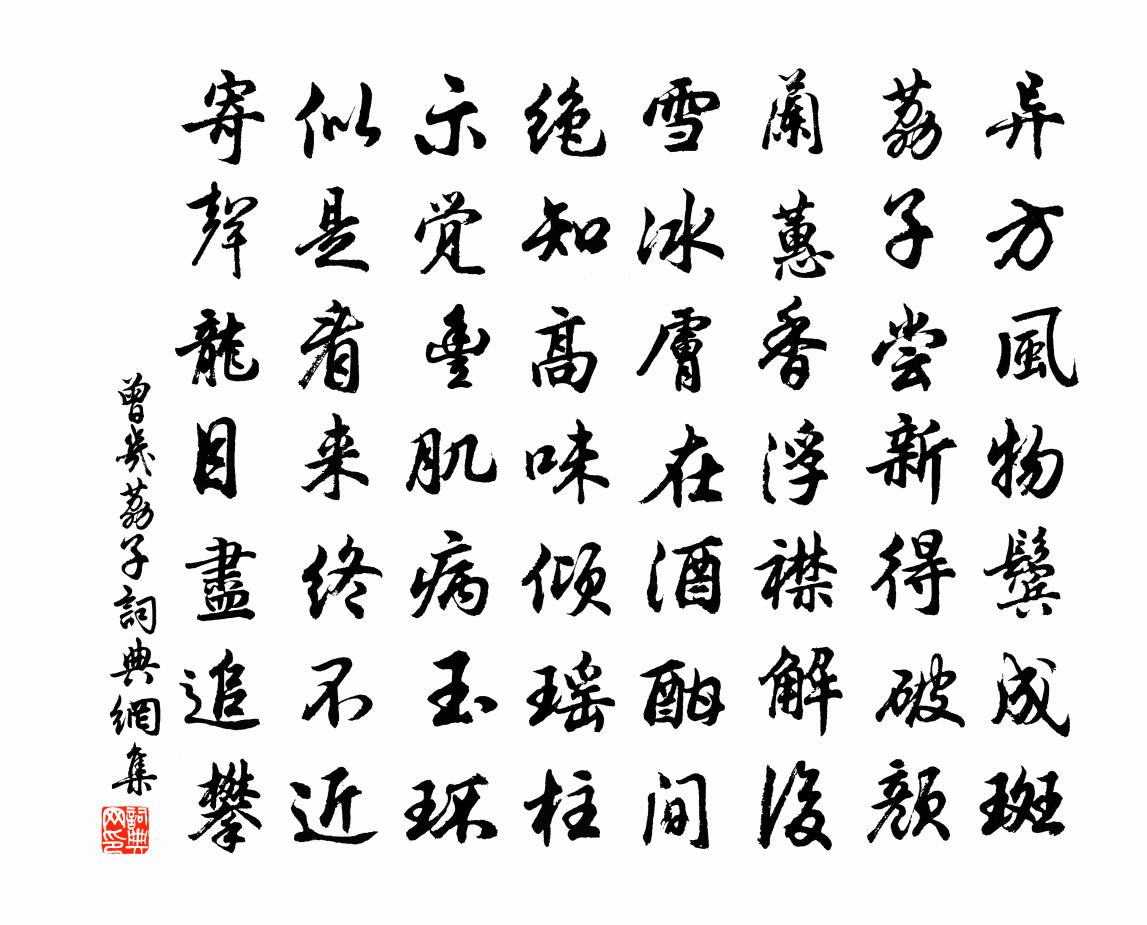 异方風物鬓成斑
荔子尝新得破顔
蘭蕙香浮襟解後
雪冰膚在酒酣间
绝知髙味倾瑶柱
示觉豐肌病玉环
似是看来终不近
寄聲龍目盡追攀
曾幾荔子詞典網集
詞典网印